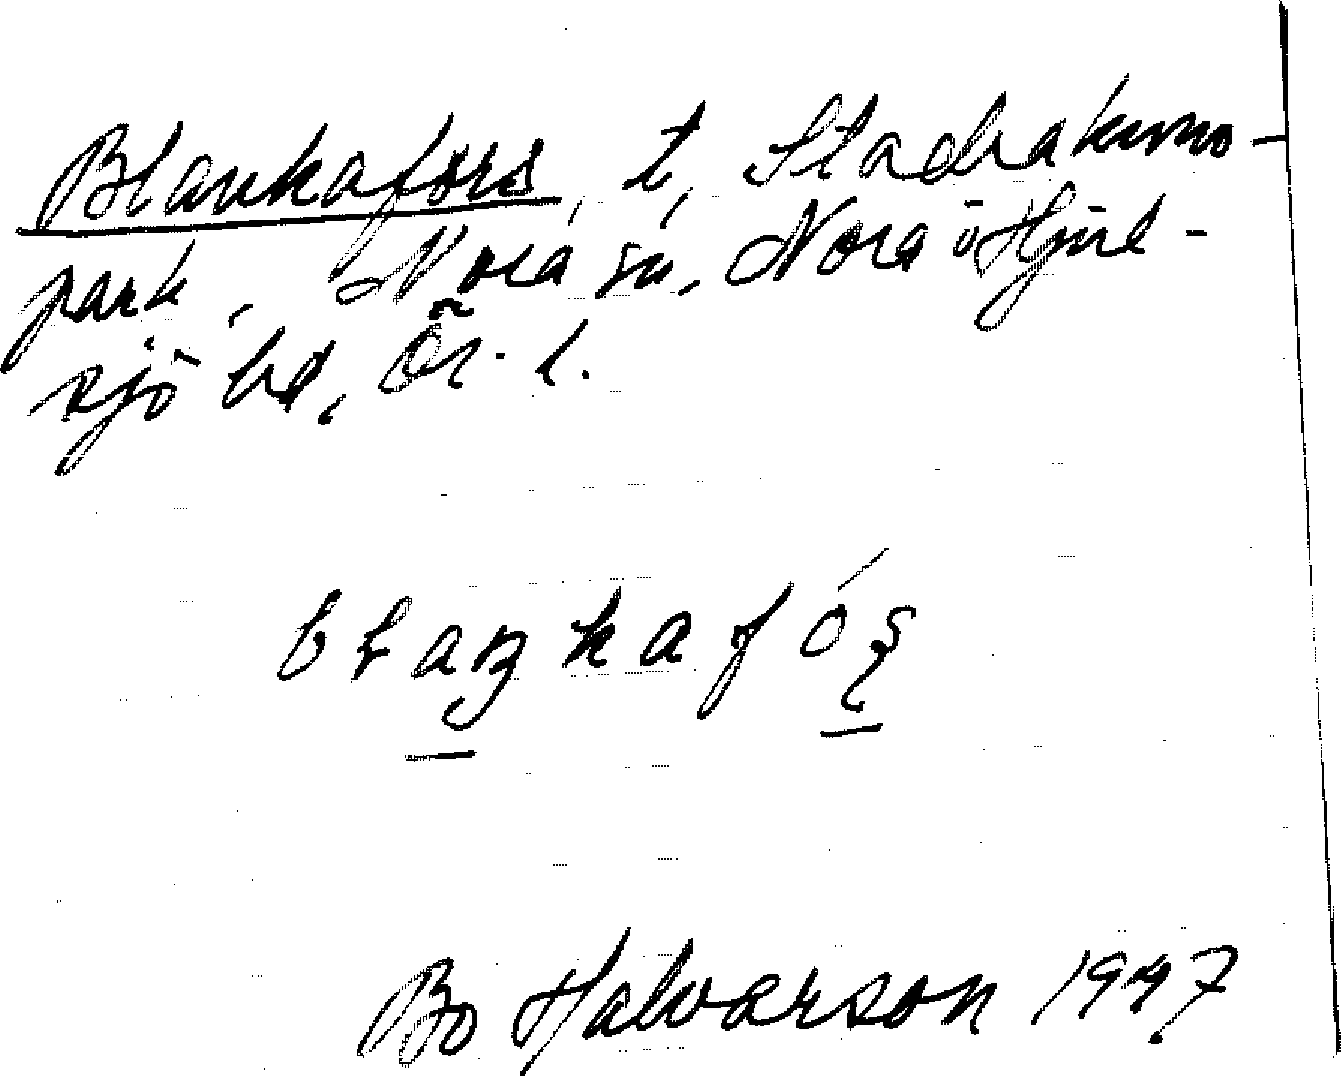 Blankafors, t, Stadrakumo-
park, Nora sn, Nora o Hjul-
sjö bd, Ör. l.
blaŋkafós
Bo Halvarson 1947